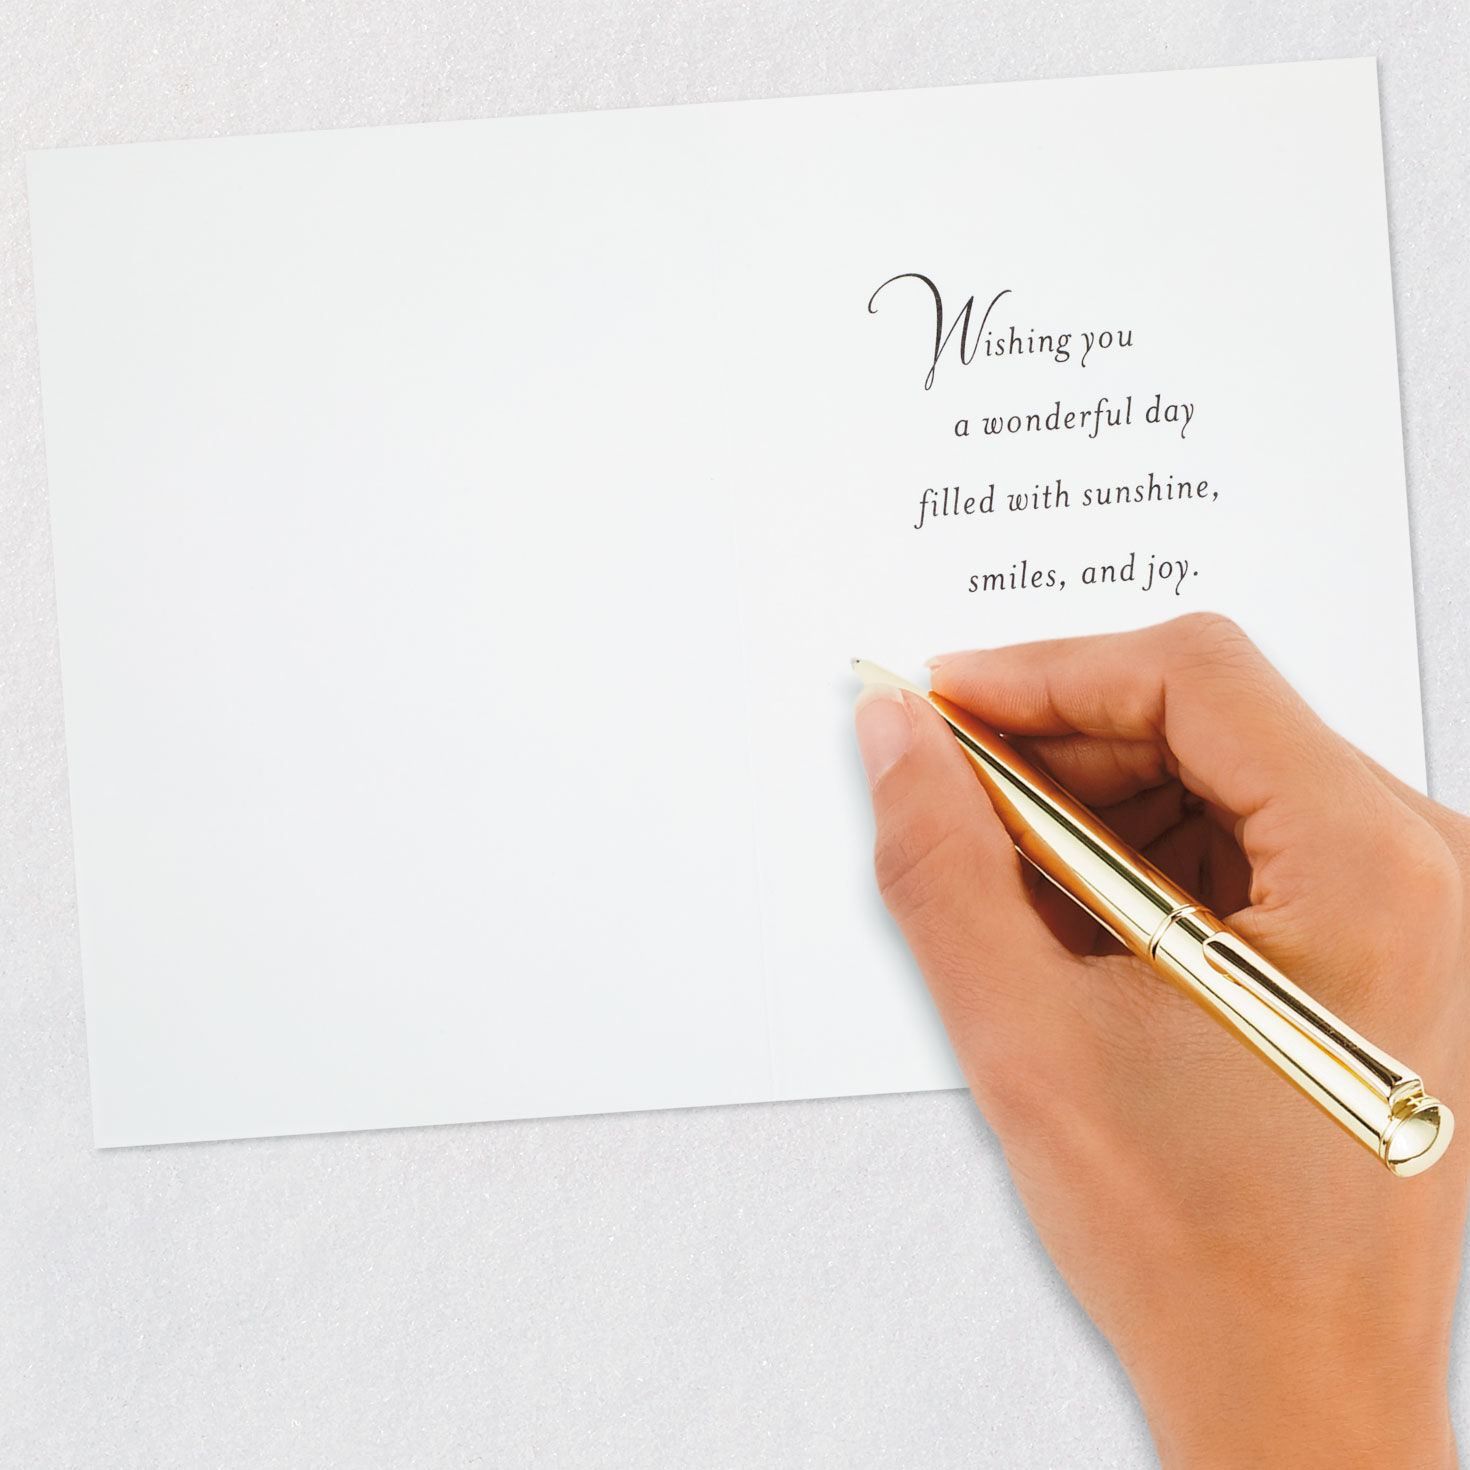 Wishing you
a wonderful day
filled with sunshine,
smiles, and joy.